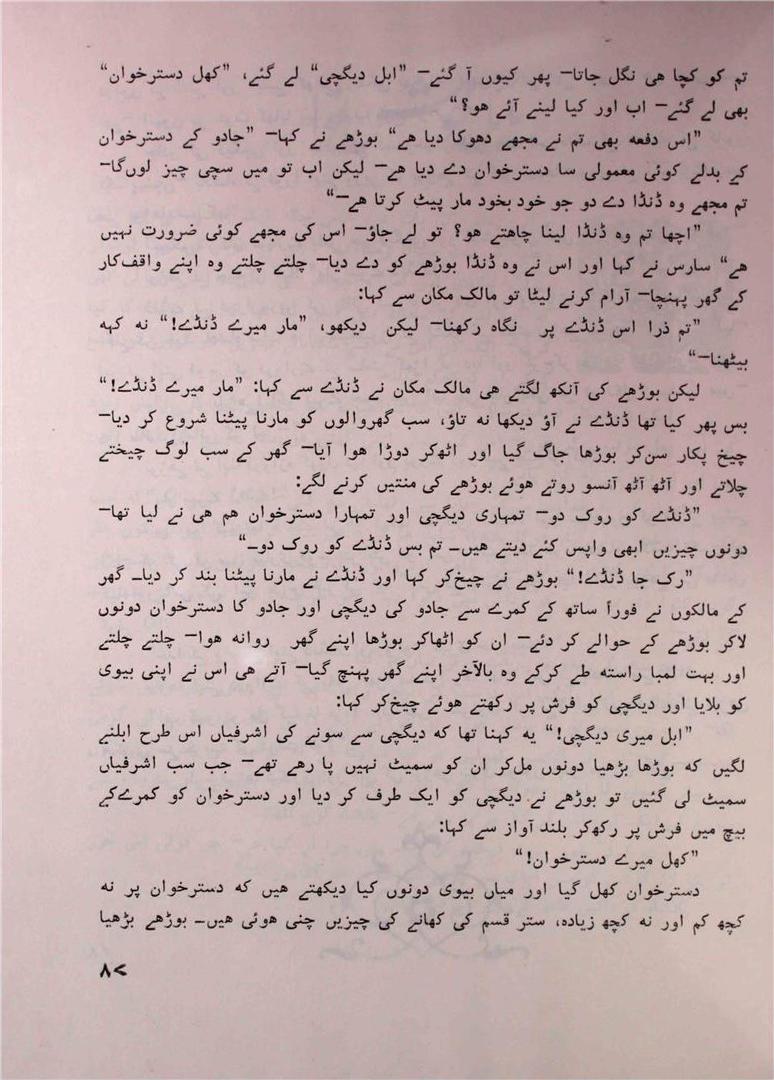 تم کو کچا ھی نگل جاتا— پھر کیوں آ گئے— ”ابل دیگچی“ لے گئے، ”کھل دسترخوان“
بھی لے گئے— اب اور کیا لینے آئے ھو؟“
”اس دفعہ بھی تم نے مجھے دھوکا دیا ھے“ بوڑھے نے کہا— ”جادو کے دسترخوان
کے بدلے کوئی معمولی سا دسترخوان دے دیا ھے— لیکن اب تو میں سچی چیز لوں‌گا—
تم مجھے وہ ڈنڈا دے دو جو خود بخود مار پیٹ کرتا ھے—“
”اچھا تم وہ ڈنڈا لینا چاھتے ھو؟ تو لے جاؤ— اس کی مجھے کوئی ضرورت نہیں
ھے“ سارس نے کہا اور اس نے وہ ڈنڈا بوڑھے کو دے دیا— چلتے چلتے وہ اپنے واقف‌کار
کے گھر پہنچا— آرام کرنے لیٹا تو مالک مکان سے کہا:
”تم ذرا اس ڈنڈے پر نگاہ رکھنا— لیکن دیکھو، ”مار میرے ڈنڈے!“ نہ کہہ
بیٹھنا—“
لیکن بوڑھے کی آنکھ لگتے ھی مالک مکان نے ڈنڈے سے کہا: ”مار میرے ڈنڈے!“
بس پھر کیا تھا ڈنڈے نے آؤ دیکھا نہ تاؤ، سب گھروالوں کو مارنا پیٹنا شروع کر دیا—
چیخ پکار سن‌کر بوڑھا جاگ گیا اور اٹھ‌کر دوڑا ھوا آیا— گھر کے سب لوگ چیختے
چلاتے اور آٹھ آٹھ آنسو روتے ھوئے بوڑھے کی منتیں کرنے لگے:
”ڈنڈے کو روک دو— تمہاری دیگچی اور تمہارا دسترخوان ھم ھی نے لیا تھا—
دونوں چیزیں ابھی واپس کئے دیتے ھیں— تم بس ڈنڈے کو روک دو—“
”رک جا ڈنڈے!“ بوڑھے نے چیخ‌کر کہا اور ڈنڈے نے مارنا پیٹنا بند کر دیا— گھر
کے مالکوں نے فوراً ساتھ کے کمرے سے جادو کی دیگچی اور جادو کا دسترخوان دونوں
لاکر بوڑھے کے حوالے کر دئے— ان کو اٹھاکر بوڑھا اپنے گھر روانہ ھوا— چلتے چلتے
اور بہت لمبا راستہ طے کرکے وہ بالآخر اپنے گھر پہنچ گیا— آتے ھی اس نے اپنی بیوی
کو بلایا اور دیگچی کو فرش پر رکھتے ھوئے چیخ‌کر کہا:
”ابل میری دیگچی!“ یہ کہنا تھا کہ دیگچی سے سونے کی اشرفیاں اس طرح ابلنے
لگیں کہ بوڑھا بڑھیا دونوں مل‌کر ان کو سمیٹ نہیں پا رھے تھے— جب سب اشرفیاں
سمیٹ لی گئیں تو بوڑھے نے دیگچی کو ایک طرف کر دیا اور دسترخوان کو کمرے‌کے
بیچ میں فرش پر رکھ‌کر بلند آواز سے کہا:
”کھل میرے دسترخوان!“
دسترخوان کھل گیا اور میاں بیوی دونوں کیا دیکھتے ھیں کہ دسترخوان پر نہ
کچھ کم اور نہ کچھ زیادہ، ستر قسم کی کھانے کی چیزیں چنی ھوئی ھیں— بوڑھے بڑھیا
۸۷